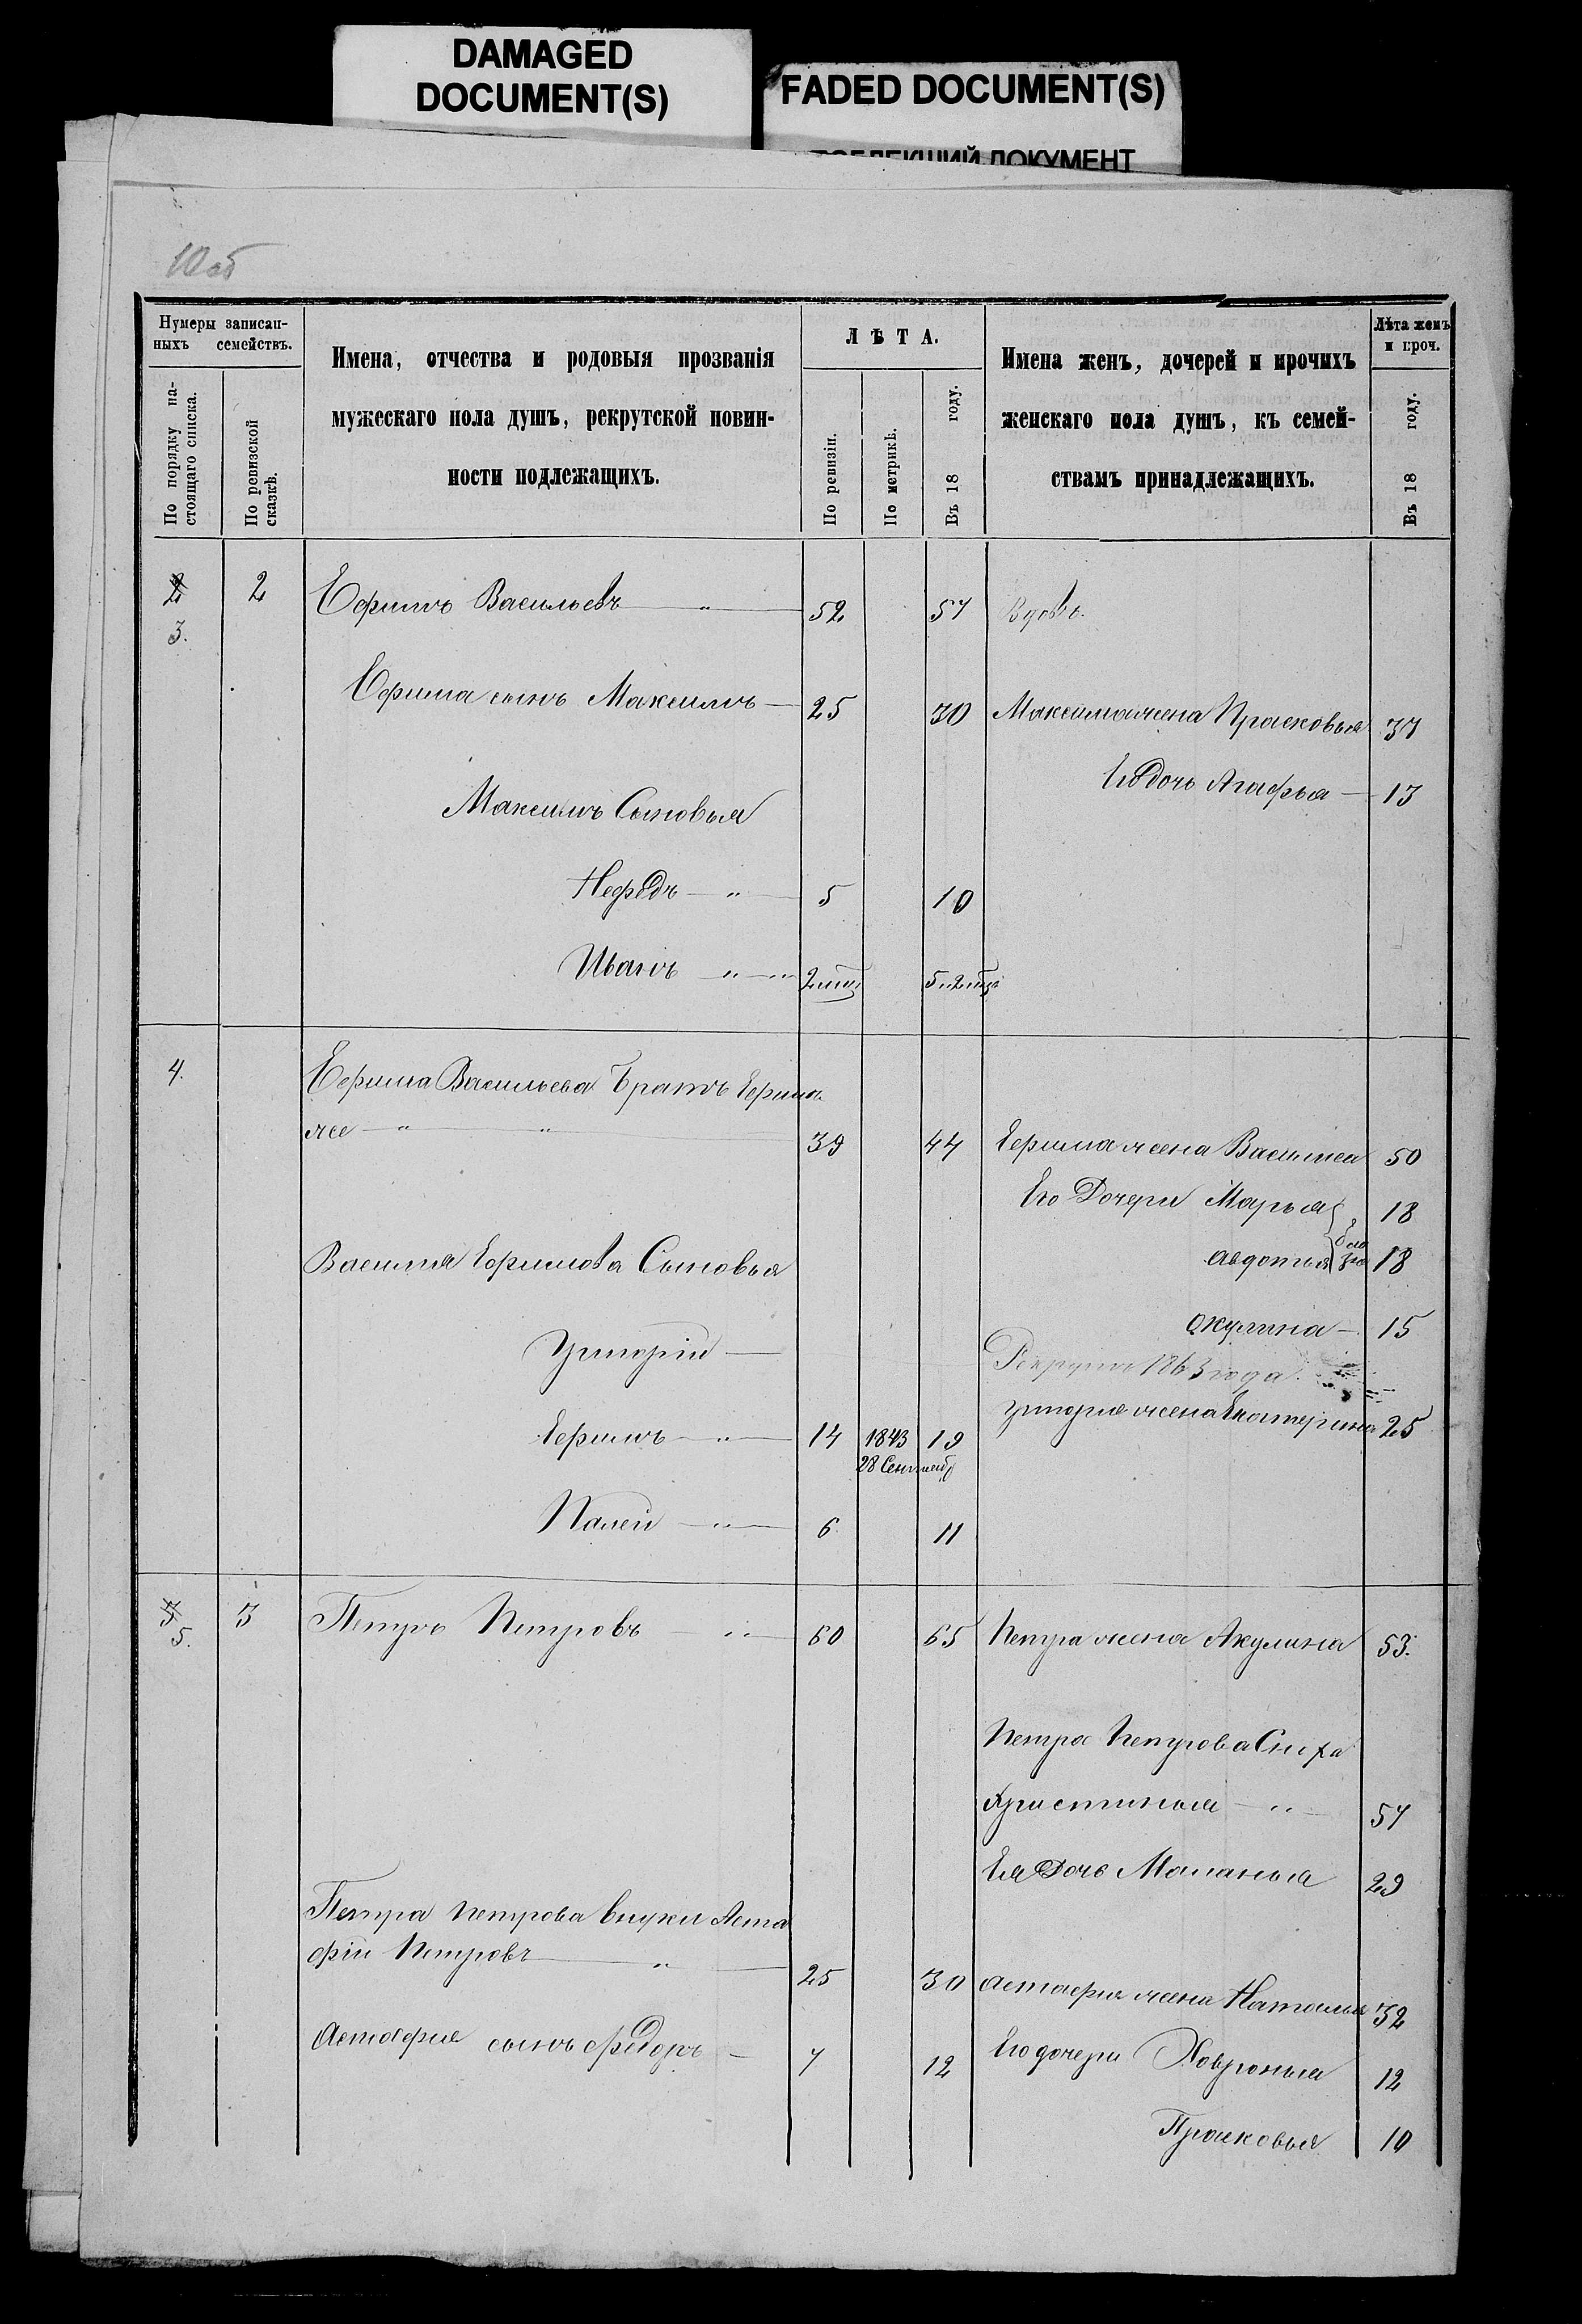 DAMAGED
DOCUMENT(S)
FADED DOCUMENT(S)
ДОКУМЕНТ
10 об
Нумеры записан-
ныхъ семействъ.
По порядку на-
стоящаго списка.
По ревизской
сказкѣ.
Имена, отчества и родовыя прозванія
мужескаго пола душъ, рекрутской повин-
ности подлежащихъ.
ЛѢТА.
По ревизіи.
По метрикѣ.
Въ 18 году.
Имена женъ, дочерей и прочихъ
женскаго пола душъ, къ семей-
ствамъ принадлежащихъ.
Лѣта женъ
и проч.
Въ 18 году.
2 2 Ефимъ Васильевъ 52 57 Вдовъ.
3.
Ефима сынъ Максимъ 25 30 Максима жена Прасковья 37
Его дочь Агафья 13
Максимъ Сыновья
Нефедъ 5 10
Иванъ
4.
Ефима Васильева Братъ Ефимъ
же 39 44 Ефима жена Василиса 50
Его Дочери Марья 18
Авдотья 18
Василия Ефимова Сыновья
Акулина 15
Григорій
Рекрутъ 1863 года
Григорія жена Екатерина 25
Ефимъ 14 1843 19
28 Сентяб
6 11
3 3 Петръ Петровъ 60 65 Петра жена Акулина 53.
5.
Петра Петрова Сноха
Христинья 57
Ея Дочь Маланья 29
Петра Петрова внуки Аста
фій Петровъ 25 30 Астафія жена Наталья 32
Астафія сынъ Федоръ 7 12 Его дочери Хавронья 12
Прасковья 10